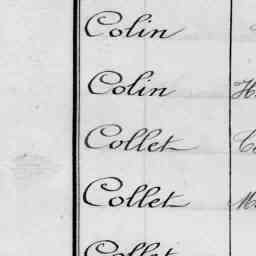 Colin
Colin H
Collet
Collet M
Collet